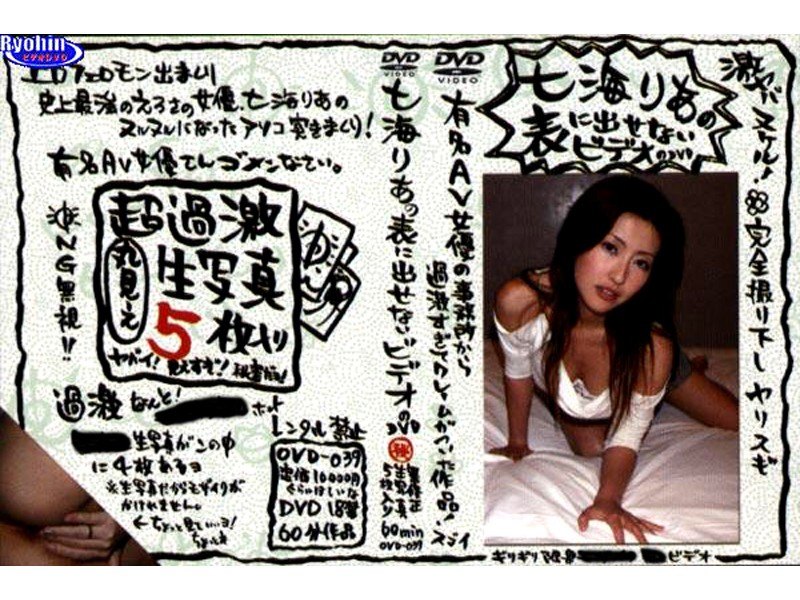 Ryohin
ビデオDVD
エロフェロモン出まくり
史上最強のえろさの女優、七海りあの
ヌルヌルになったアソコ突きまくり!
有名AV女優でんゴメンなさい。
NG無視!!
超過激
丸見え
生写真
5枚入り
ヤバイ!見えすぎ!
過激なんと!
ホット
生写真がこの中
に4枚あるヨ
※生写真だからモザイクが
かけれません。
←ちょっと見ていいヨ!
レンタル禁止
DVD-039
定価10000円
ぐらいはしいな
DVD 18禁
60分作品
DVD
VIDEO
七海りあの表に出せないビデオのDVD
無修正
生写真
5枚入り
60min
DVD-039
DVD
VIDEO
有名AV女優の事務所から
過激すぎてクレームがついた作品!スゴイ
七海りあの
表に出せない
ビデオのDVD
激ヤバスケル!
完全撮り下しヤリスギ
ギリギリ
ビデオ